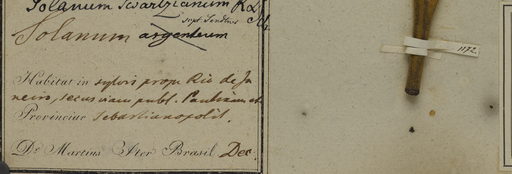 Solanum Swartzianum R&S.
sept. Sendtner
Solanum argenteum
Habitat in sylvis prope Rio de Ja
neiro, secus viam publ.
Provinciae Sebastianopolit.
Dr. Martius Iter Brasil. Dec.
1172